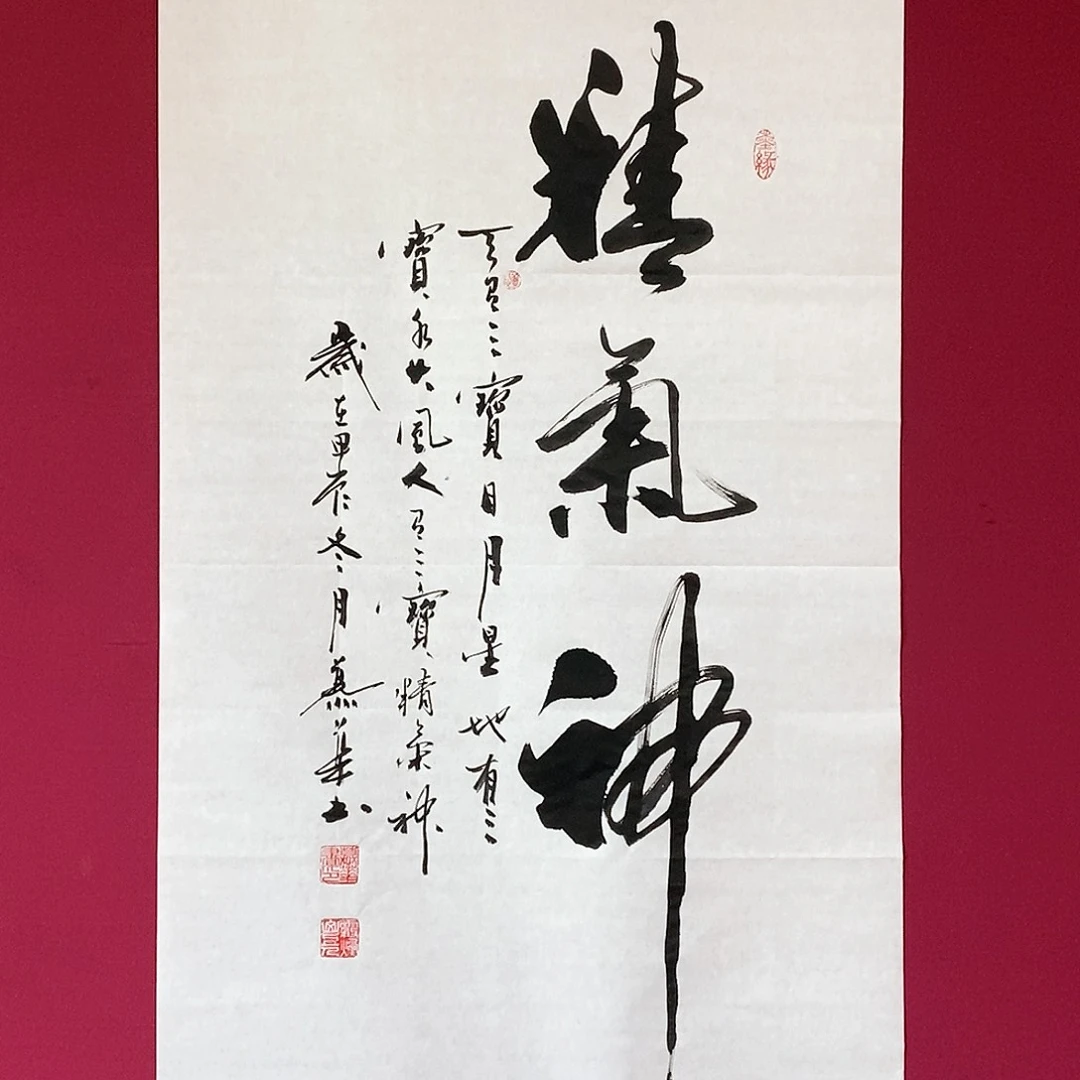 精氣神
天有三寶日月星地有三
寶水火風人有三寶精氣神
歲在甲辰冬月慕華书
墨緣